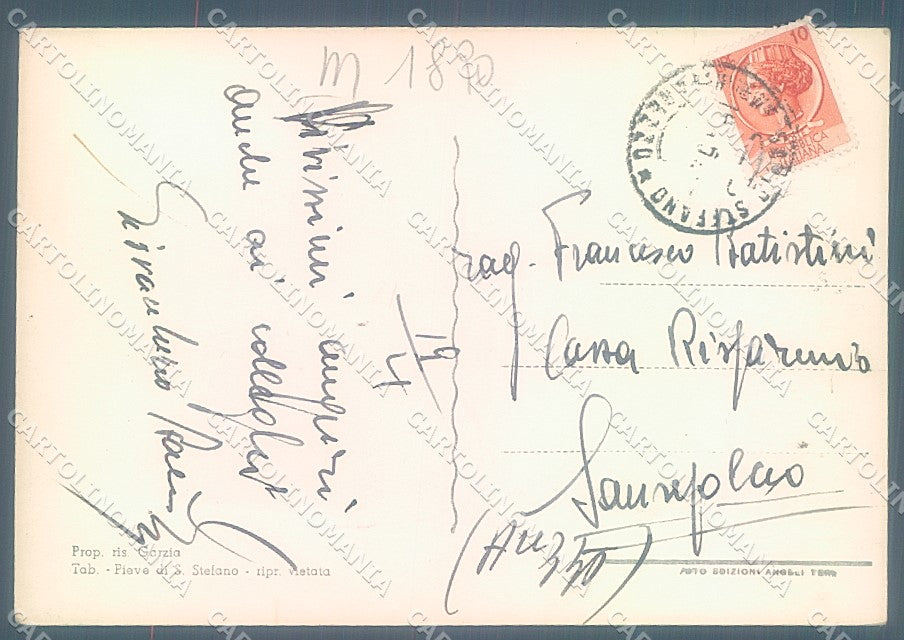 m 18
Vivissimi auguri
anche ai colleghi
19
4
rag. Francesco Batistini
Cassa Risparmio
Sansepolcro
(Arezzo)
10
REPUBBLICA
ITALIANA
STEFANO
Prop. ris. Garzia
Tab. - Pieve di S. Stefano - ripr. vietata
FOTO EDIZIONI ANGELI TERNI
CARTOLINOMANIA